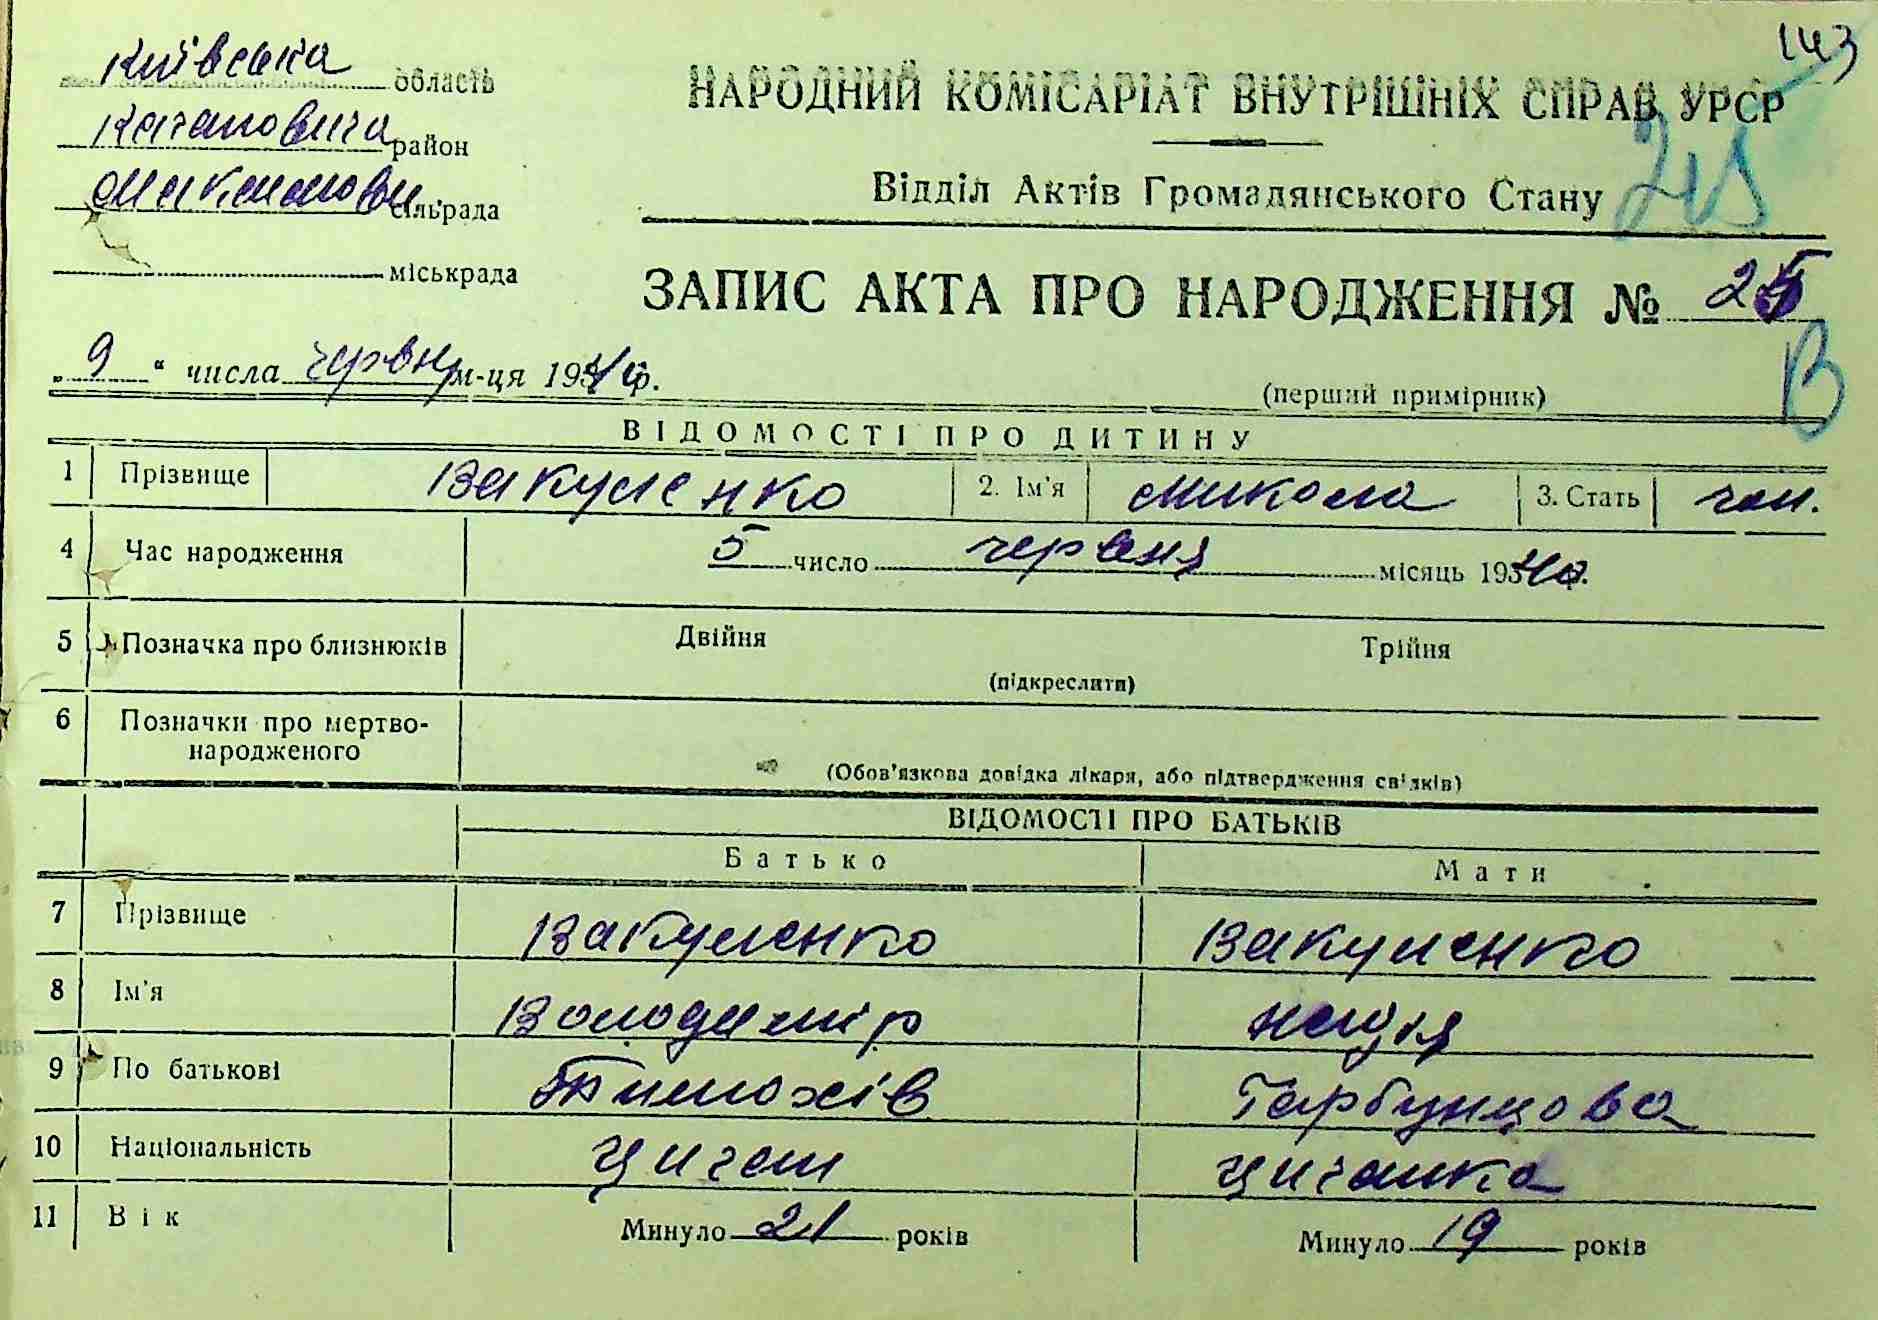 143
Київська область
НАРОДНИЙ КОМІСАРІАТ ВНУТРІШНІХ СПРАВ УРСР
Кагановича район
сільрада
Відділ Актів Громадянського Стану
міськрада
ЗАПИС АКТА ПРО НАРОДЖЕННЯ №
„9“ числа червня м-ця 1940 р.
(перший примірник)
В
ВІДОМОСТІ ПРО ДИТИНУ
1 Прізвище Вакуленко 2. Ім'я Микола 3. Стать чол.
4 Час народження 5 число червня місяць 1940р.
5 Позначка про близнюків Двійня Трійня
(підкреслити)
6 Позначки про мертво-
народженого
(Обов'язкова довідка лікаря, або підтвердження свідків)
ВІДОМОСТІ ПРО БАТЬКІВ
Батько Мати
7 Прізвище Вакуленко Вакуленко
8 Ім'я Володимір Надія
9 По батькові Тимохів
10 Національність циган циганка
11 Вік Минуло 21 років Минуло 19 років